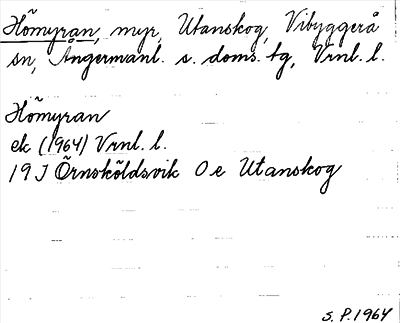 Hömyran, myr, Utanskog, Vibyggerå
sn, Ångermanl. s. doms. tg, Vrnl. l.
Hömyran
ek (1964) Vrnl. l.
19 J Örnsköldsvik 0 e Utanskog
S. P. 1964